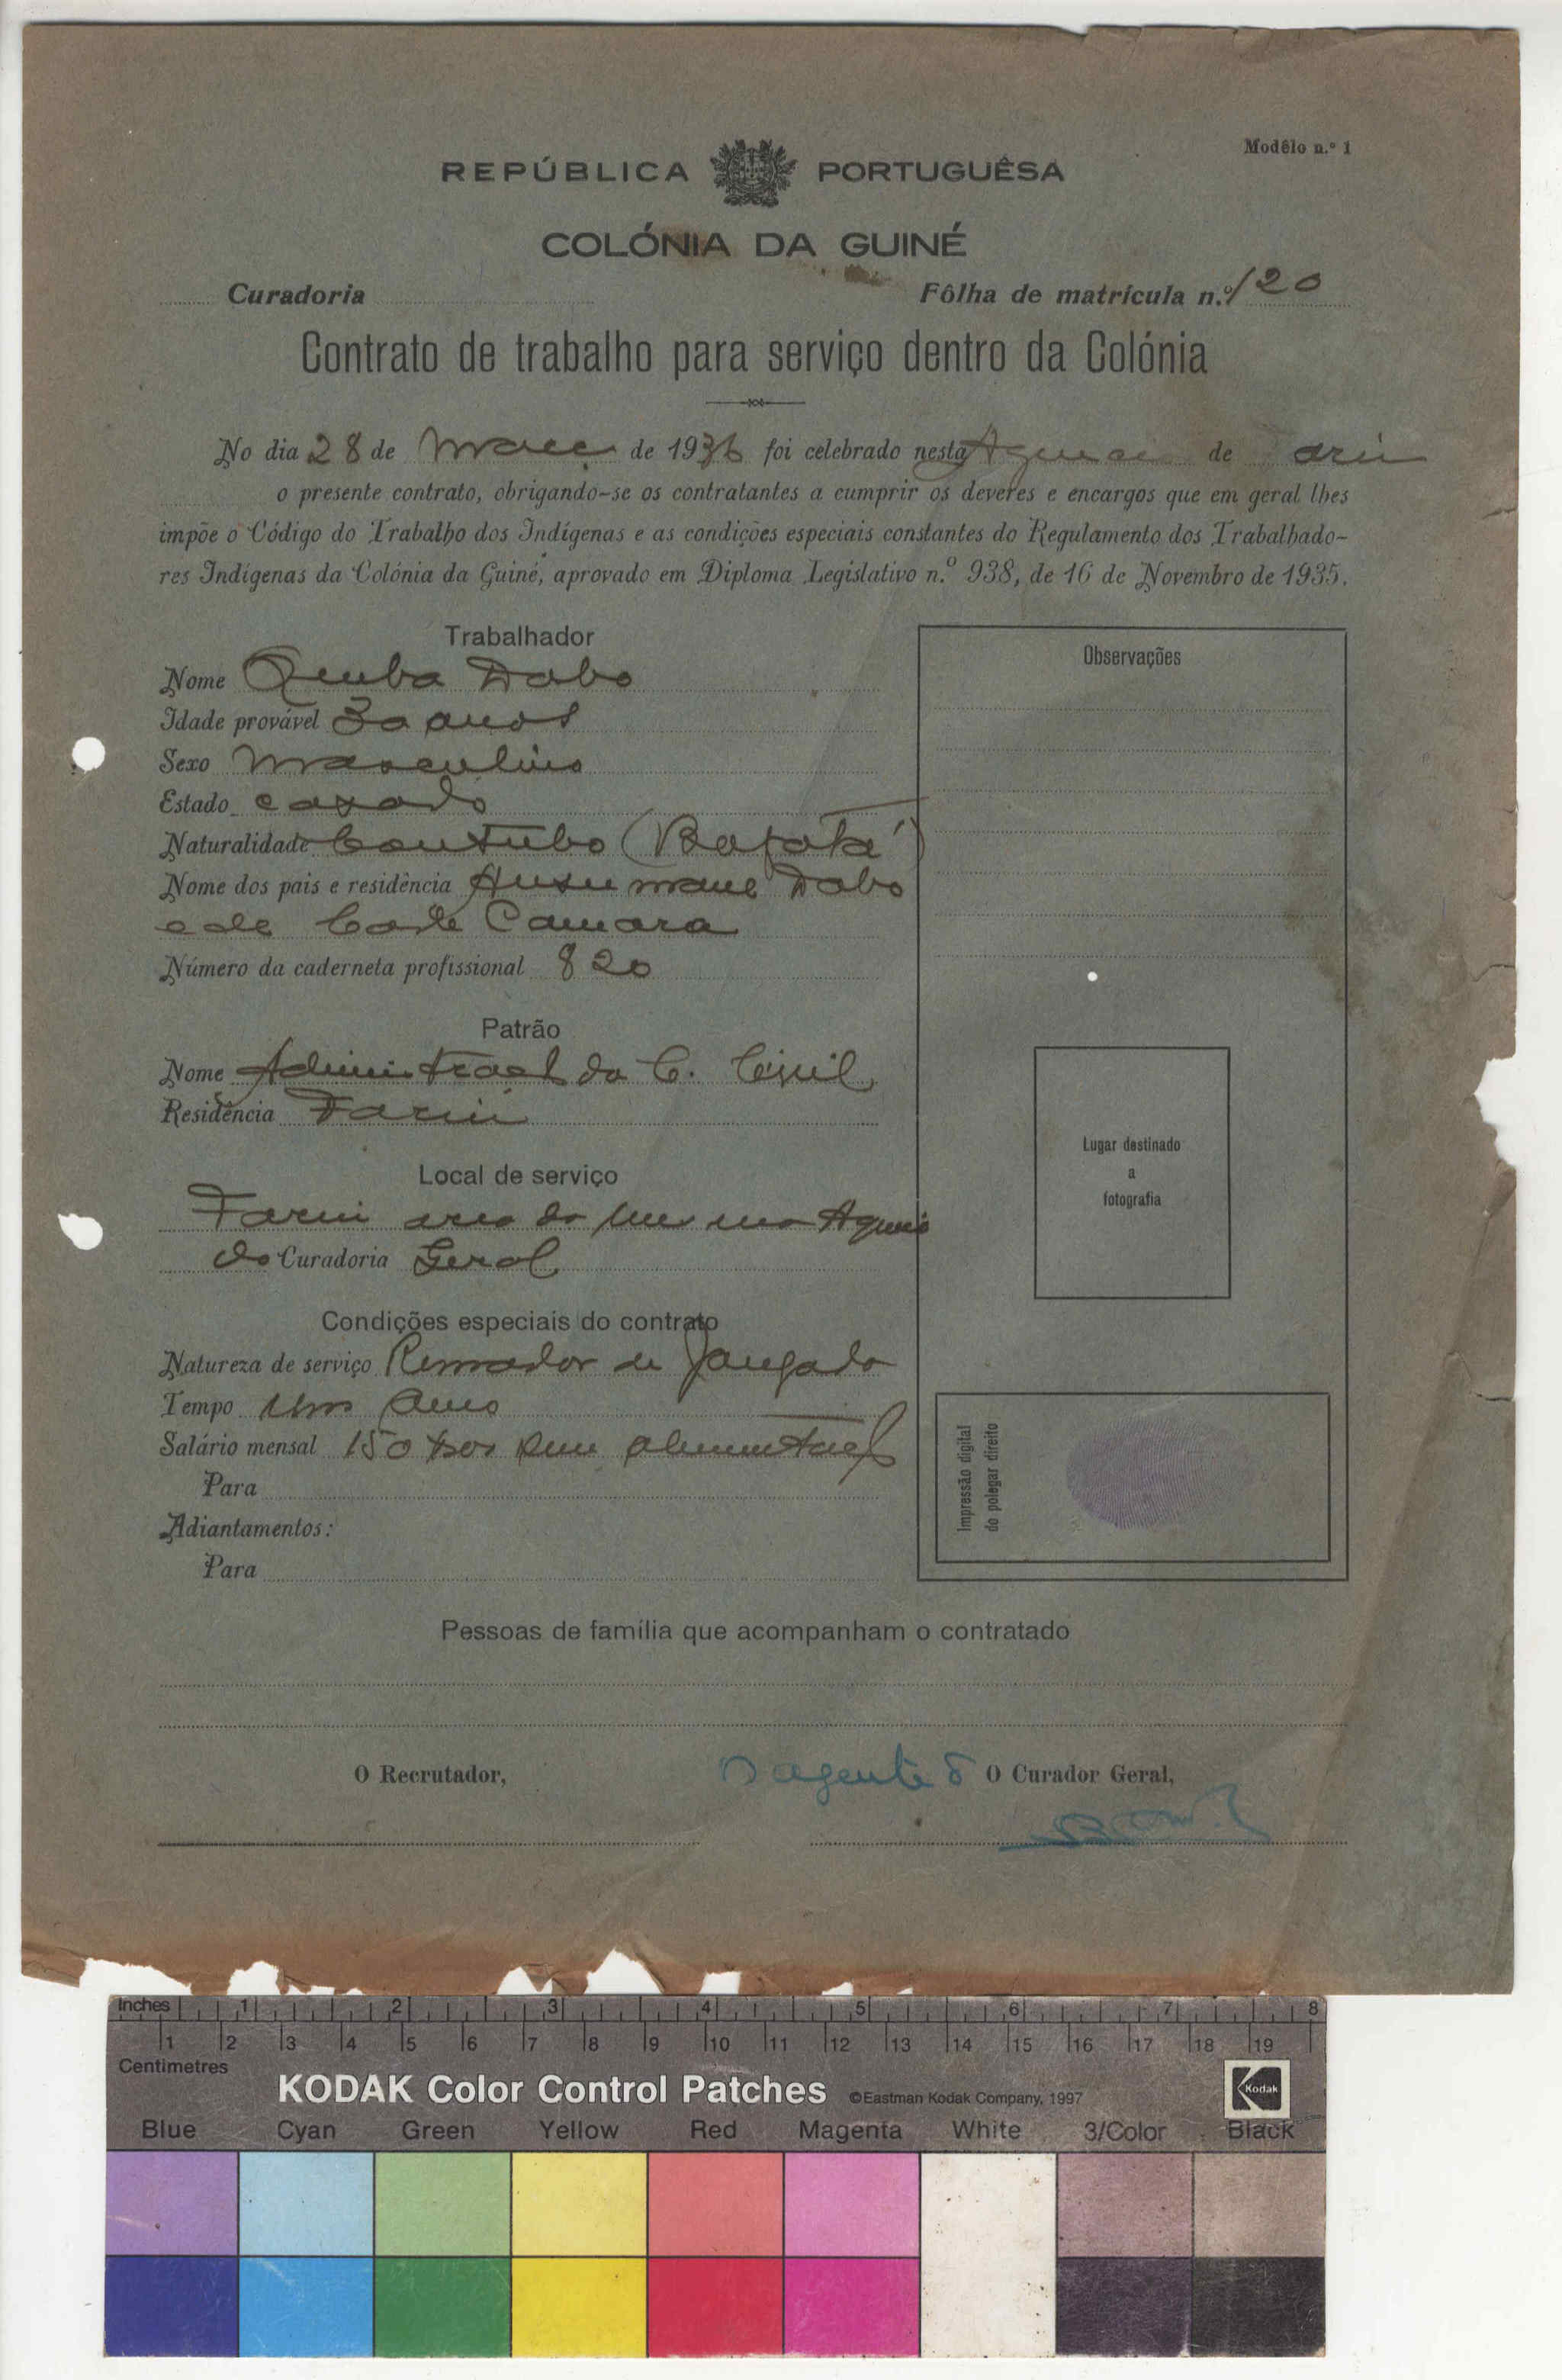 Modêlo n.º 1
REPÚBLICA PORTUGUÊSA
COLÓNIA DA GUINÉ
Curadoria Fôlha de matrícula n.º 120
Contrato de trabalho para serviço dentro da Colónia
No dia 28 de de 1936 foi celebrado nesta de
o presente contrato, obrigando-se os contratantes a cumprir os deveres e encargos que em geral lhes
impõe o Código do Trabalho dos Indígenas e as condições especiais constantes do Regulamento dos Trabalhado-
res Indígenas da Colónia da Guiné, aprovado em Diploma Legislativo n.º 938, de 16 de Novembro de 1935.
Trabalhador
Nome Dabo
Idade provável 30 anos
Sexo masculino
Estado casado
Naturalidade Contubo (Bafatá)
Nome dos pais e residência Dabo
e de Camara
Número da caderneta profissional 820
Patrão
Nome da C. Civil
Residência Farim
Local de serviço
Farim area da mesma
da Curadoria Geral
Condições especiais do contrato
Natureza de serviço Remador de Jangada
Tempo Um Ano
Salário mensal 150
Para
Adiantamentos:
Para
Observações
Lugar destinado
a
fotografia
Impressão digital
do polegar direito
Pessoas de família que acompanham o contratado
O Recrutador,
O agente O Curador Geral,
Inches 1 2 3 4 5 6 7 8
1 2 3 4 5 6 7 8 9 10 11 12 13 14 15 16 17 18 19
Centimetres
KODAK Color Control Patches ©Eastman Kodak Company, 1997 Kodak
Blue Cyan Green Yellow Red Magenta White 3/Color Black